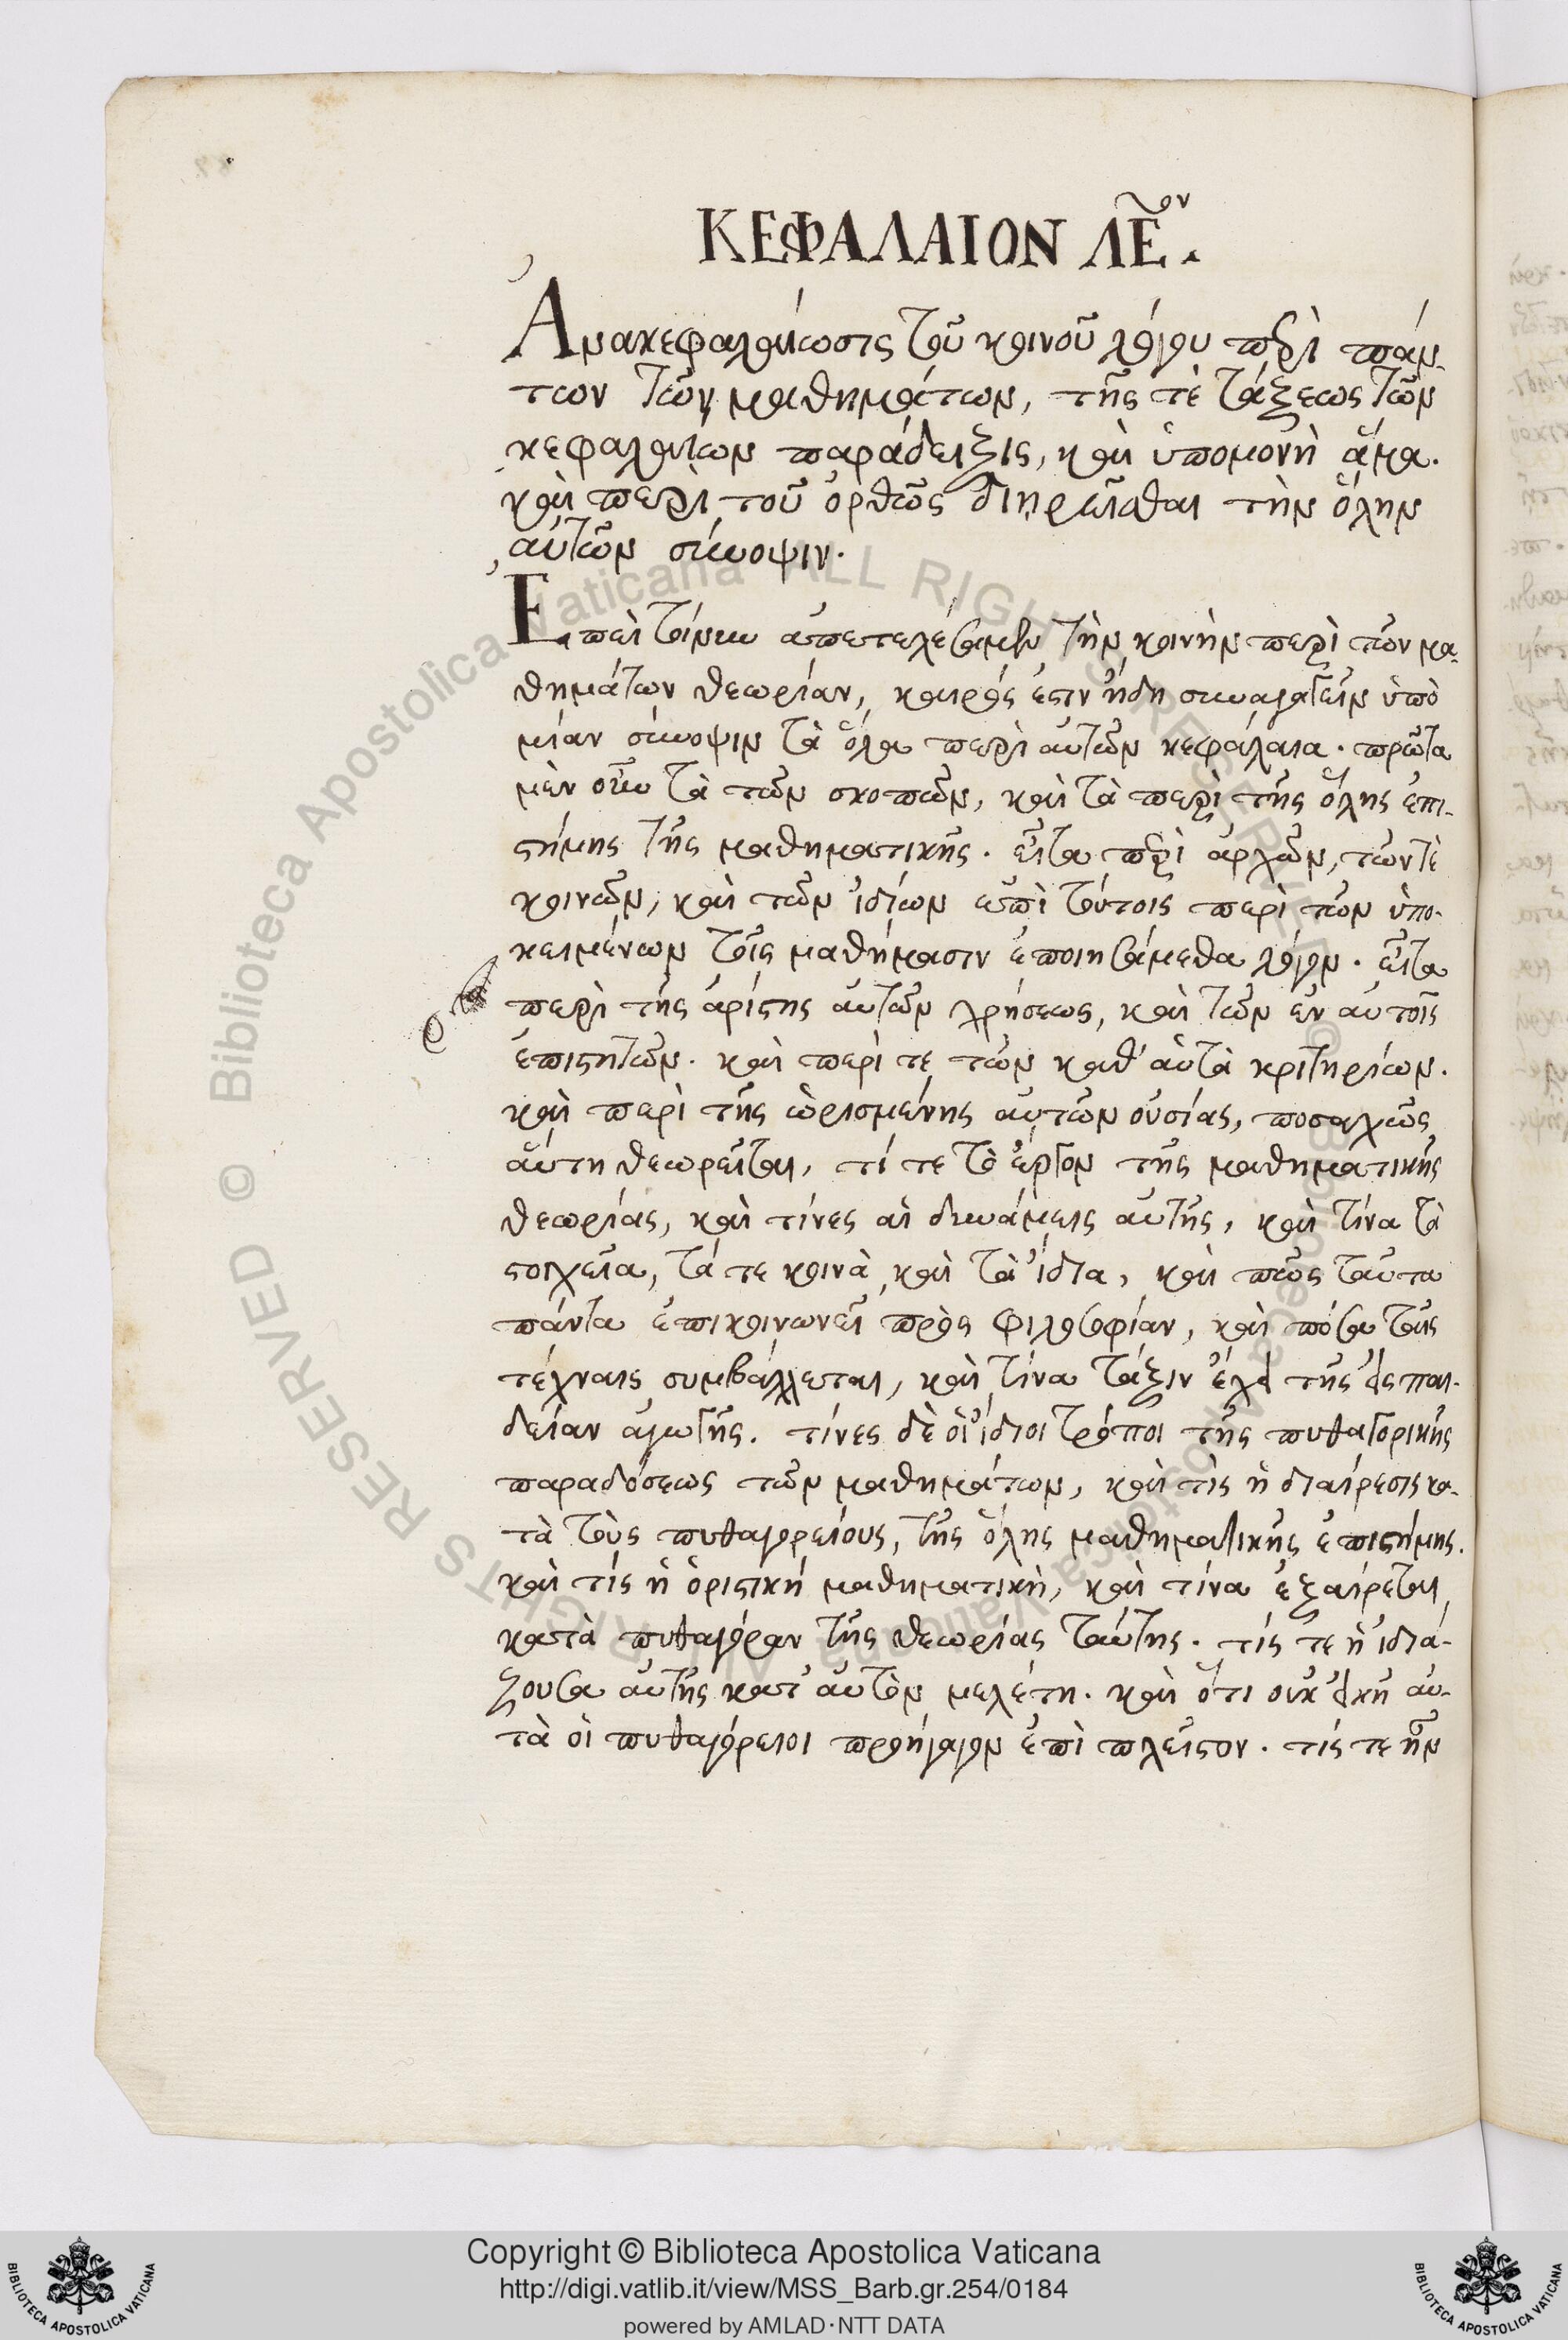 ΚΕΦΑΛΑΙΟΝ ΛΕον.
Ἀνακεφαλαίωσις τοῦ κοινοῦ λόγου περὶ πάν-
των τῶν μαθημάτων, τῆς τὲ τάξεως τῶν
κεφαλαίων παράδειξις, καὶ ὑπομονὴ ἅμα.
καὶ περὶ τοῦ ὀρθῶς διηρεῖσθαι τὴν ὅλην
αὐτῶν σύνοψιν.
Ἐπεὶ τοίνυν ἀπετελέσαμεν τὴν κοινὴν περὶ τῶν μα-
θημάτων θεωρίαν, καιρός ἐστιν ἤδη συναγαγεῖν ὑπὸ
μίαν σύνοψιν τὰ ὅλα περὶ αὐτῶν κεφάλαια. πρῶτα
μὲν οὖν τὰ τῶν σκοπῶν, καὶ τὰ περὶ τῆς ὅλης ἐπι-
στήμης τῆς μαθηματικῆς. εἶτα περὶ ἀρχῶν, τῶν τὲ
κοινῶν, καὶ τῶν ἰδίων ἐπὶ τούτοις περὶ τῶν ὑπο-
κειμένων τοῖς μαθήμασιν ἐποιησάμεθα λόγον. εἶτα
περὶ τῆς ἀρίστης αὐτῶν χρήσεως, καὶ τῶν ἐν αὐτοῖς
ἐπιστητῶν. καὶ περί τε τῶν καθ' αὑτὰ κριτηρίων.
καὶ περὶ τῆς ὡρισμένης αὐτῶν οὐσίας, ποσαχῶς
αὕτη θεωρεῖται, τί τε τὸ ἔργον τῆς μαθηματικῆς
θεωρίας, καὶ τίνες αἱ δυνάμεις αὐτῆς, καὶ τίνα τὰ
στοιχεῖα, τά τε κοινὰ καὶ τὰ ἴδια, καὶ πῶς ταῦτα
πάντα ἐπικοινωνεῖ πρὸς φιλοσοφίαν, καὶ πόσα ταῖς
τέχναις συμβάλλεται, καὶ τίνα τάξιν ἔχει τῆς εἰς παι-
δείαν ἀγωγῆς. τίνες δὲ οἱ ἴδιοι τρόποι τῆς πυθαγορικῆς
παραδόσεως τῶν μαθημάτων, καὶ τίς ἡ διαίρεσις κα-
τὰ τοὺς πυθαγορείους, τῆς ὅλης μαθηματικῆς ἐπιστήμης.
καὶ τίς ἡ ὁριστικὴ μαθηματικὴ, καὶ τίνα ἐξαίρεται
κατὰ πυθαγόραν τῆς θεωρίας ταύτης. τίς τε ἡ ἰδιά-
ζουσα αὐτῆς κατ' αὐτὸν μελέτη. καὶ ὅτι οὐκ εἰκῆ αὐ-
τὰ οἱ πυθαγόρειοι προήγαγον ἐπὶ πλεῖστον. τίς τε ἦν
Copyright © Biblioteca Apostolica Vaticana
http://digi.vatlib.it/view/MSS_Barb.gr.254/0184
powered by AMLAD·NTT DATA